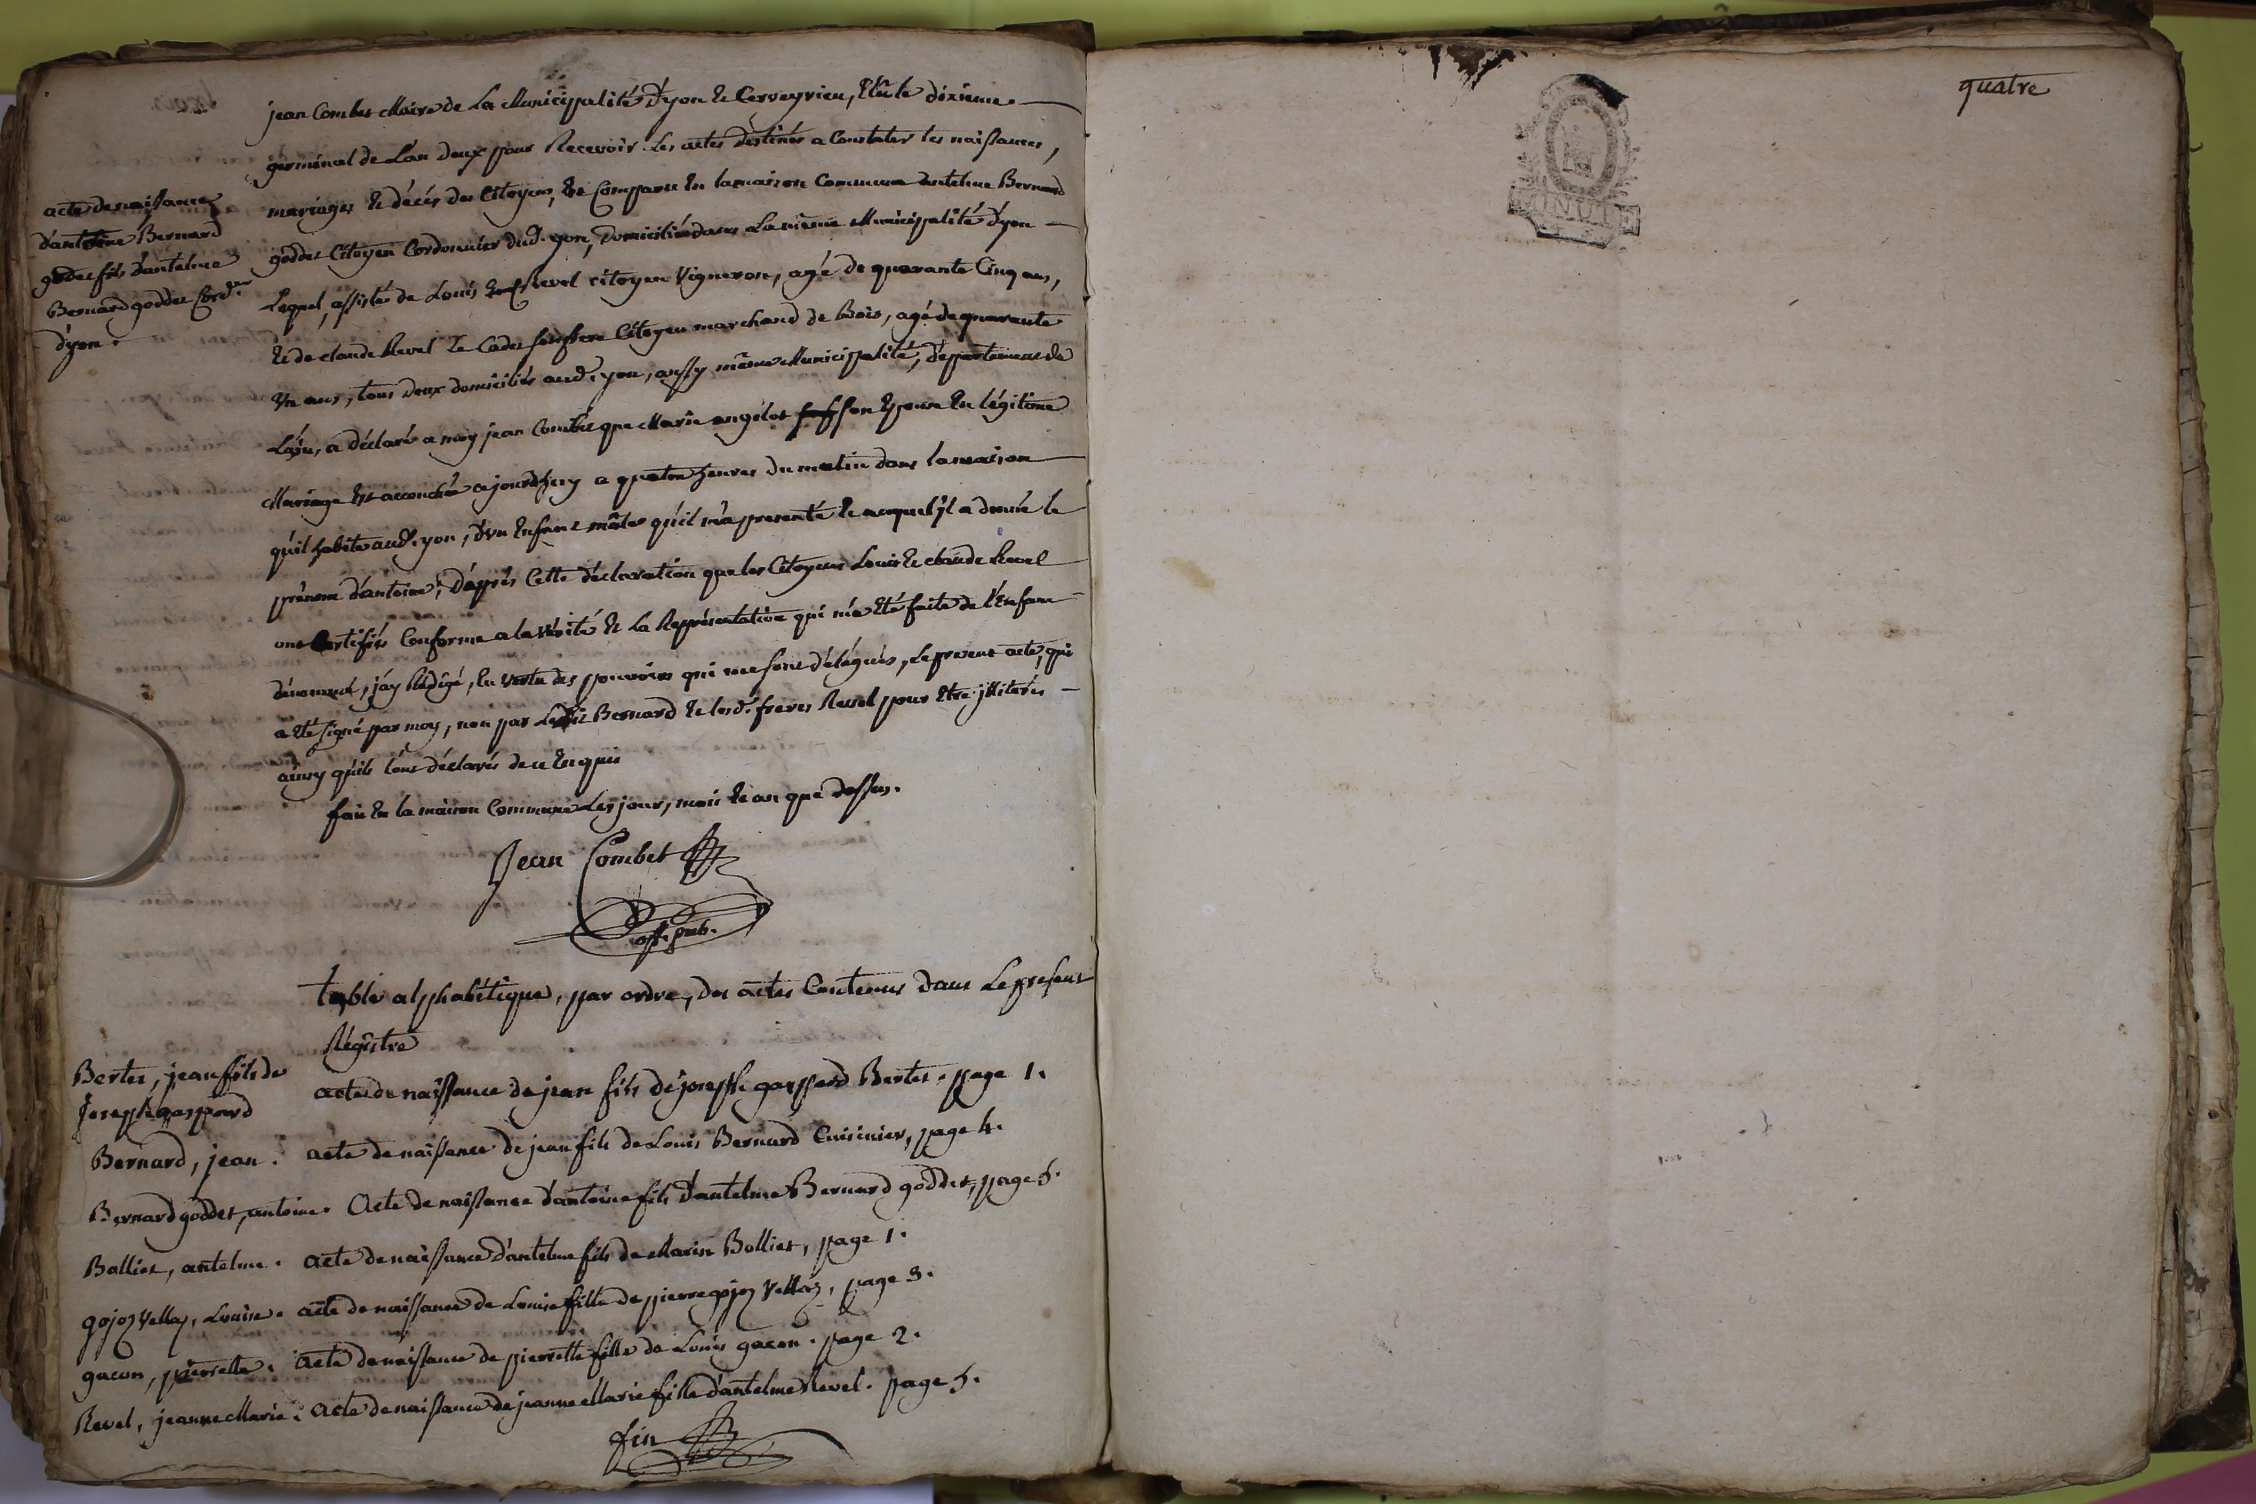 jean Combet Maire de La Municipalité d'yon & Cerveyrieu, Elû le dixieme
germinal de L'an deux pour Recevoir Les actes destinés a Constater les naissances,
mariages & décés des Citoyens, Est Comparu En la maison Commune Anthelme Bernard
goddet Citoyen Cordonnier dud. yon, Domicilié dans La même Municipalité d'yon
Lequel, assisté de Louis Revel citoyen Vigneron, agé de quarante Cinq ans,
& de claude Revel Le Cadet son frere Citoyen marchand de Bois, agé de quarante
Un ans, tous deux domiciliés aud. yon, aussy même Municipalité, département de
L'ain, a déclaré a moy jean Combet que Marie angelot son Epouse En légitime
Mariage Est accouchée ajourd'huy a quatre heures du matin dans la maison
qu'il habite aud. yon, d'un Enfant mâle qu'il m'a presenté & auquel il a donné le
prénom d'antoine; d'après Cette déclaration que les Citoyens Louis & claude Revel
ont Certifiés Conforme a la vérité & La Représentation qui m'a Eté faite de l'Enfant
dénommé, j'ay Rédigé, En vertu des pouvoirs qui me sont délégués, Le present acte, qui
a Eté signé par moy, non par Ledit Bernard & lesd. freres Revel pour Etre illiterés
ainsy qu'ils l'ont déclarés de ce Enquis
fait En la maison Commune Les jour, mois & an que dessus.
Jean Combet
off. pub.
acte de naissance
d'antoine Bernard
goddet fils d'antelme
Bernard goddet Cord.er
d'yon.
table alphabétique, par ordre, des actes Contenus dans Le present
Régistre
Bertet, jean fils de
Joseph gaspard
acte de naissance de jean fils de joseph gaspard Bertet. page 1.
Bernard, jean. acte de naissance de jean fils de Louis Bernard Cuisinier, page 4.
Bernard goddet, antoine. Acte de naissance d'antoine fils d'antelme Bernard goddet, page 5.
Balliet, antelme. acte de naissance d'antelme fils de Marin Bolliet, page 1.
gojoz Vellaz, Louise. acte de naissance de Louise fille de pierre gojoz Vellaz, page 3.
gacon, pierrette. acte de naissance de pierrette fille de Louis gacon. page 2.
Revel, jeanne Marie. acte de naissance de jeanne Marie fille d'antelme Revel. page 5.
fin
quatre
MINUTE